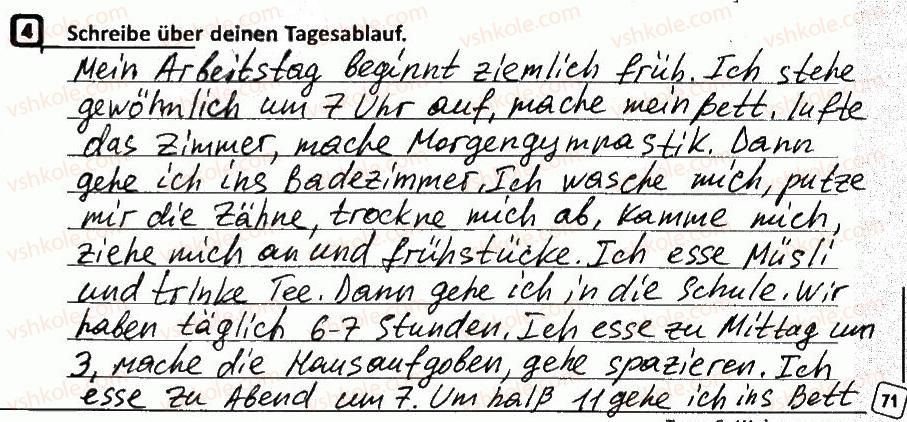 4 Schreibe über deinen Tagesablauf.
Mein Arbeitstag beginnt ziemlich früh. Ich stehe
gewöhnlich um 7 Uhr auf, mache mein Bett, lüfte
das Zimmer, mache Morgengymnastik. Dann
gehe ich ins Badezimmer. Ich wasche mich, putze
mir die Zähne, trockne mich ab, kamme mich,
ziehe mich an und frühstücke. Ich esse Müsli
und trinke Tee. Dann gehe ich in die Schule. Wir
haben täglich 6-7 Stunden. Ich esse zu Mittag um
3, mache die Hausaufgoben, gehe spazieren. Ich
esse zu Abend um 7. Um halß 11 gehe ich ins Bett
71